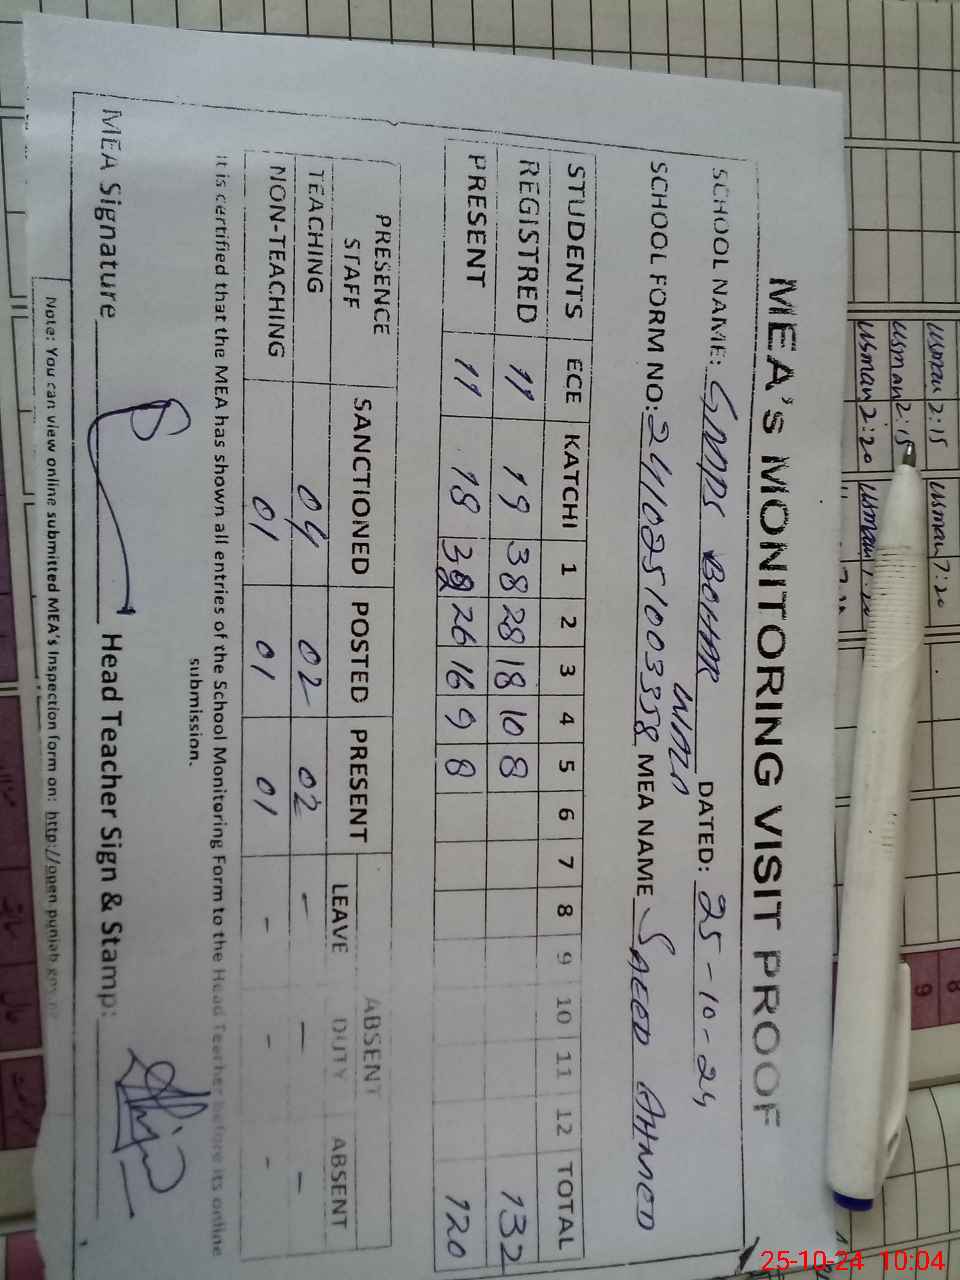 MEA's MONITORING VISIT PROOF
SCHOOL NAME: GMMPS BOHAR DATED: 25-10-24
WALA
SCHOOL FORM NO: 24110251003358 MEA NAME SAEED AHMED
STUDENTS ECE KATCHI 1 2 3 4 5 6 7 8 9 10 11 12 TOTAL
REGISTRED 11 19 38 28 18 10 8 132
PRESENT 11 18 32 26 16 9 8 120
PRESENCE STAFF SANCTIONED POSTED PRESENT ABSENT
LEAVE DUTY ABSENT
TEACHING 04 02 02 - - -
NON-TEACHING 01 01 01 - - -
It is certified that the MEA has shown all entries of the School Monitoring Form to the Head Teacher before its online
submission.
MEA Signature Head Teacher Sign & Stamp:
Note: You can view online submitted MEA's Inspection form on: http://open.punjab.gov.pk
usman 2:15 usman 7:20
usman 2:15
usman 2:20 usman 7:20
8
9
25-10-24 10:04